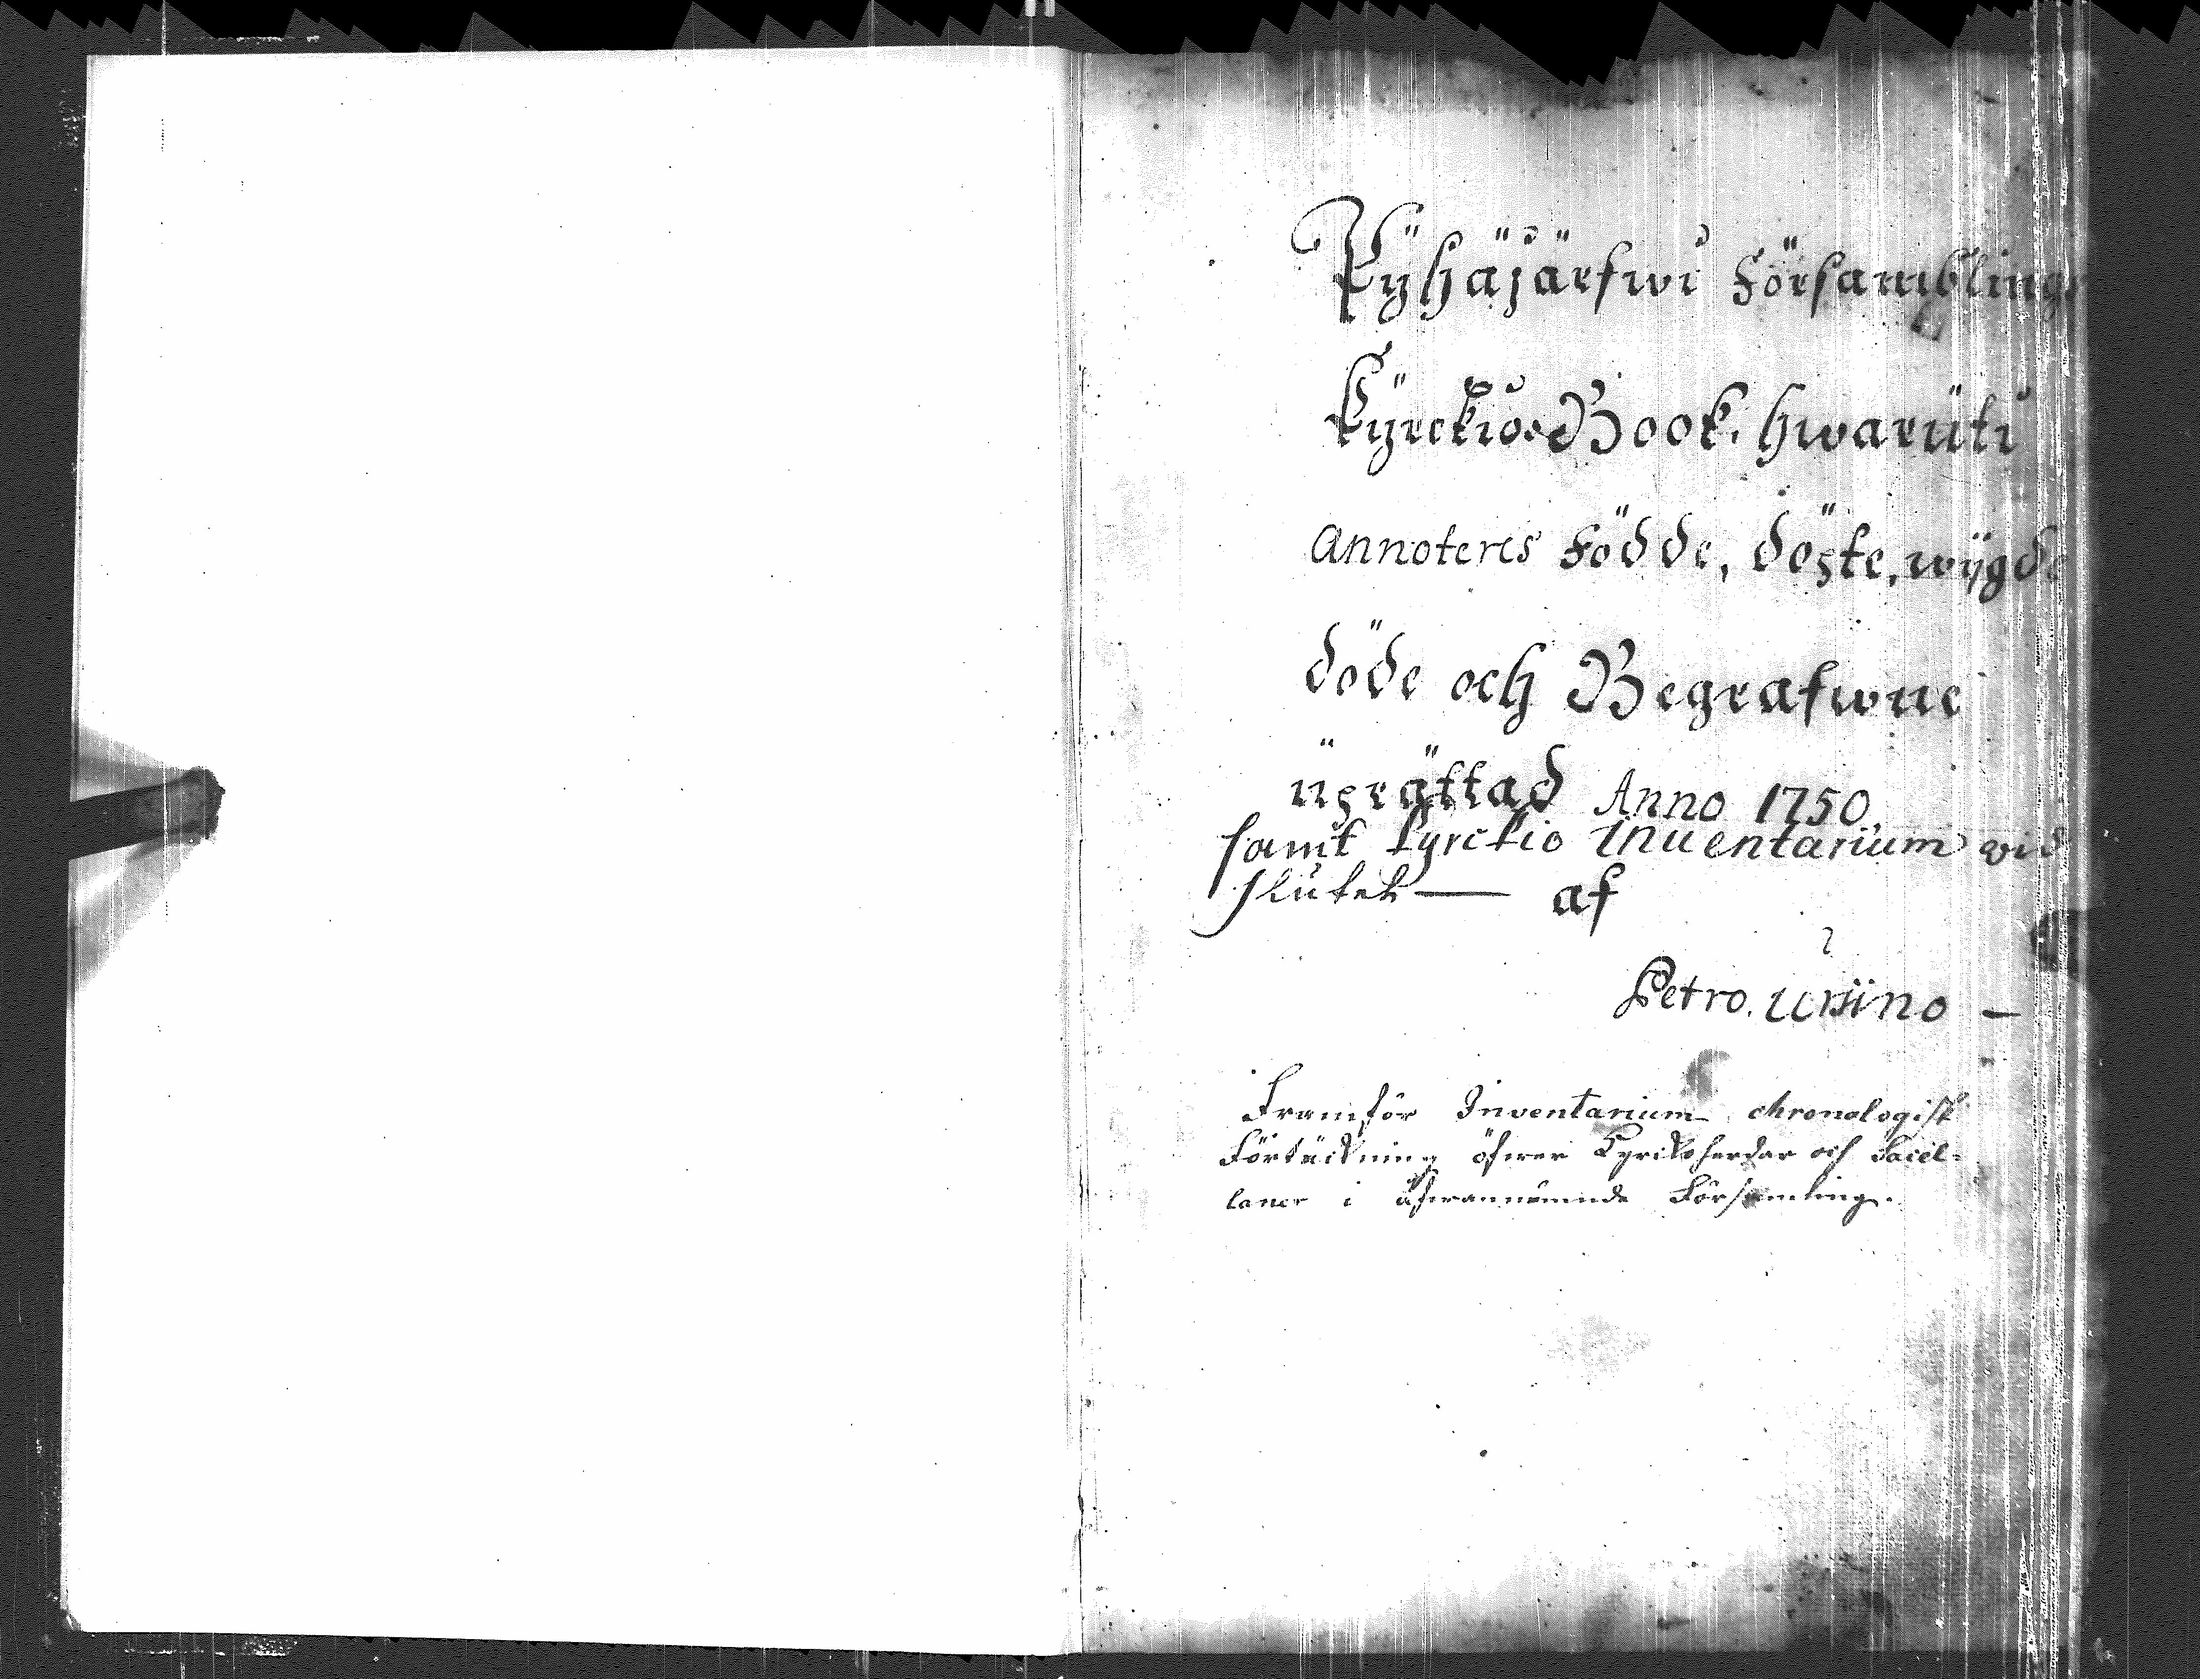 Pÿhäjärfwi Församblings
Kÿrckio-Book, hwarüti
Annoteres Födde, döpte, wÿgde
döde och Begrafwne
üprättad Anno 1750
samt Kyrckio Inventarium wid
slutet — af
Petro. Ursino —
Framför Inventarium chronologisk
Förtäckning öfwer Kyrckoherdar och Sacel-
laner i ofwannämnde Församling.